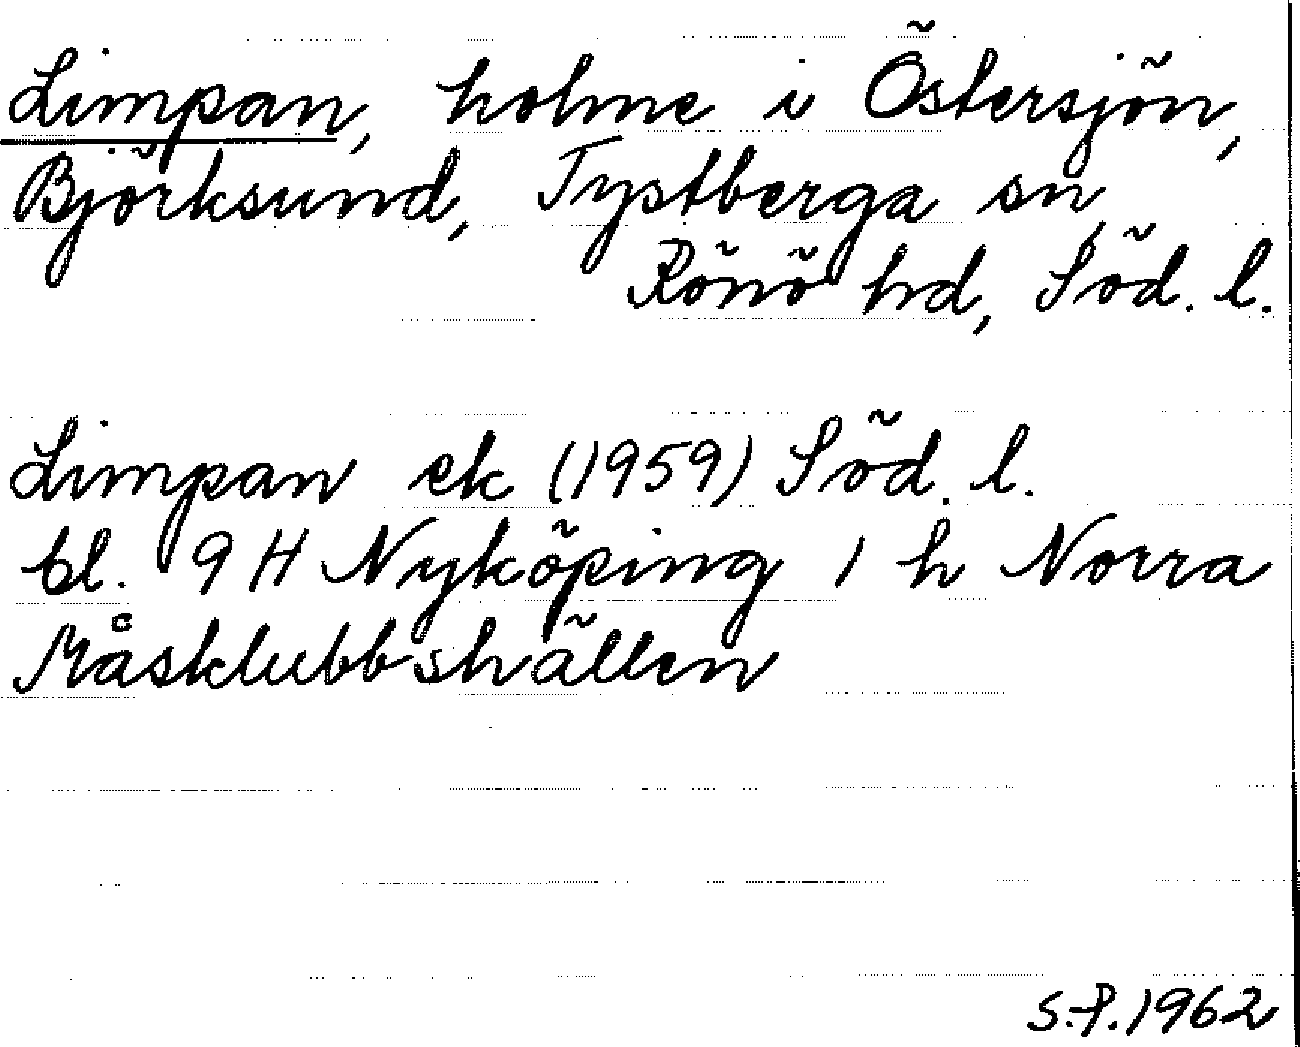 Limpan, holme i Östersjön,
Björksund, Tystberga sn,
Rönö hd, Söd. l.
Limpan ek (1959) Söd. l.
bl. 9 H Nyköping 1 h Norra
Måsklubbshällen
S.P. 1962